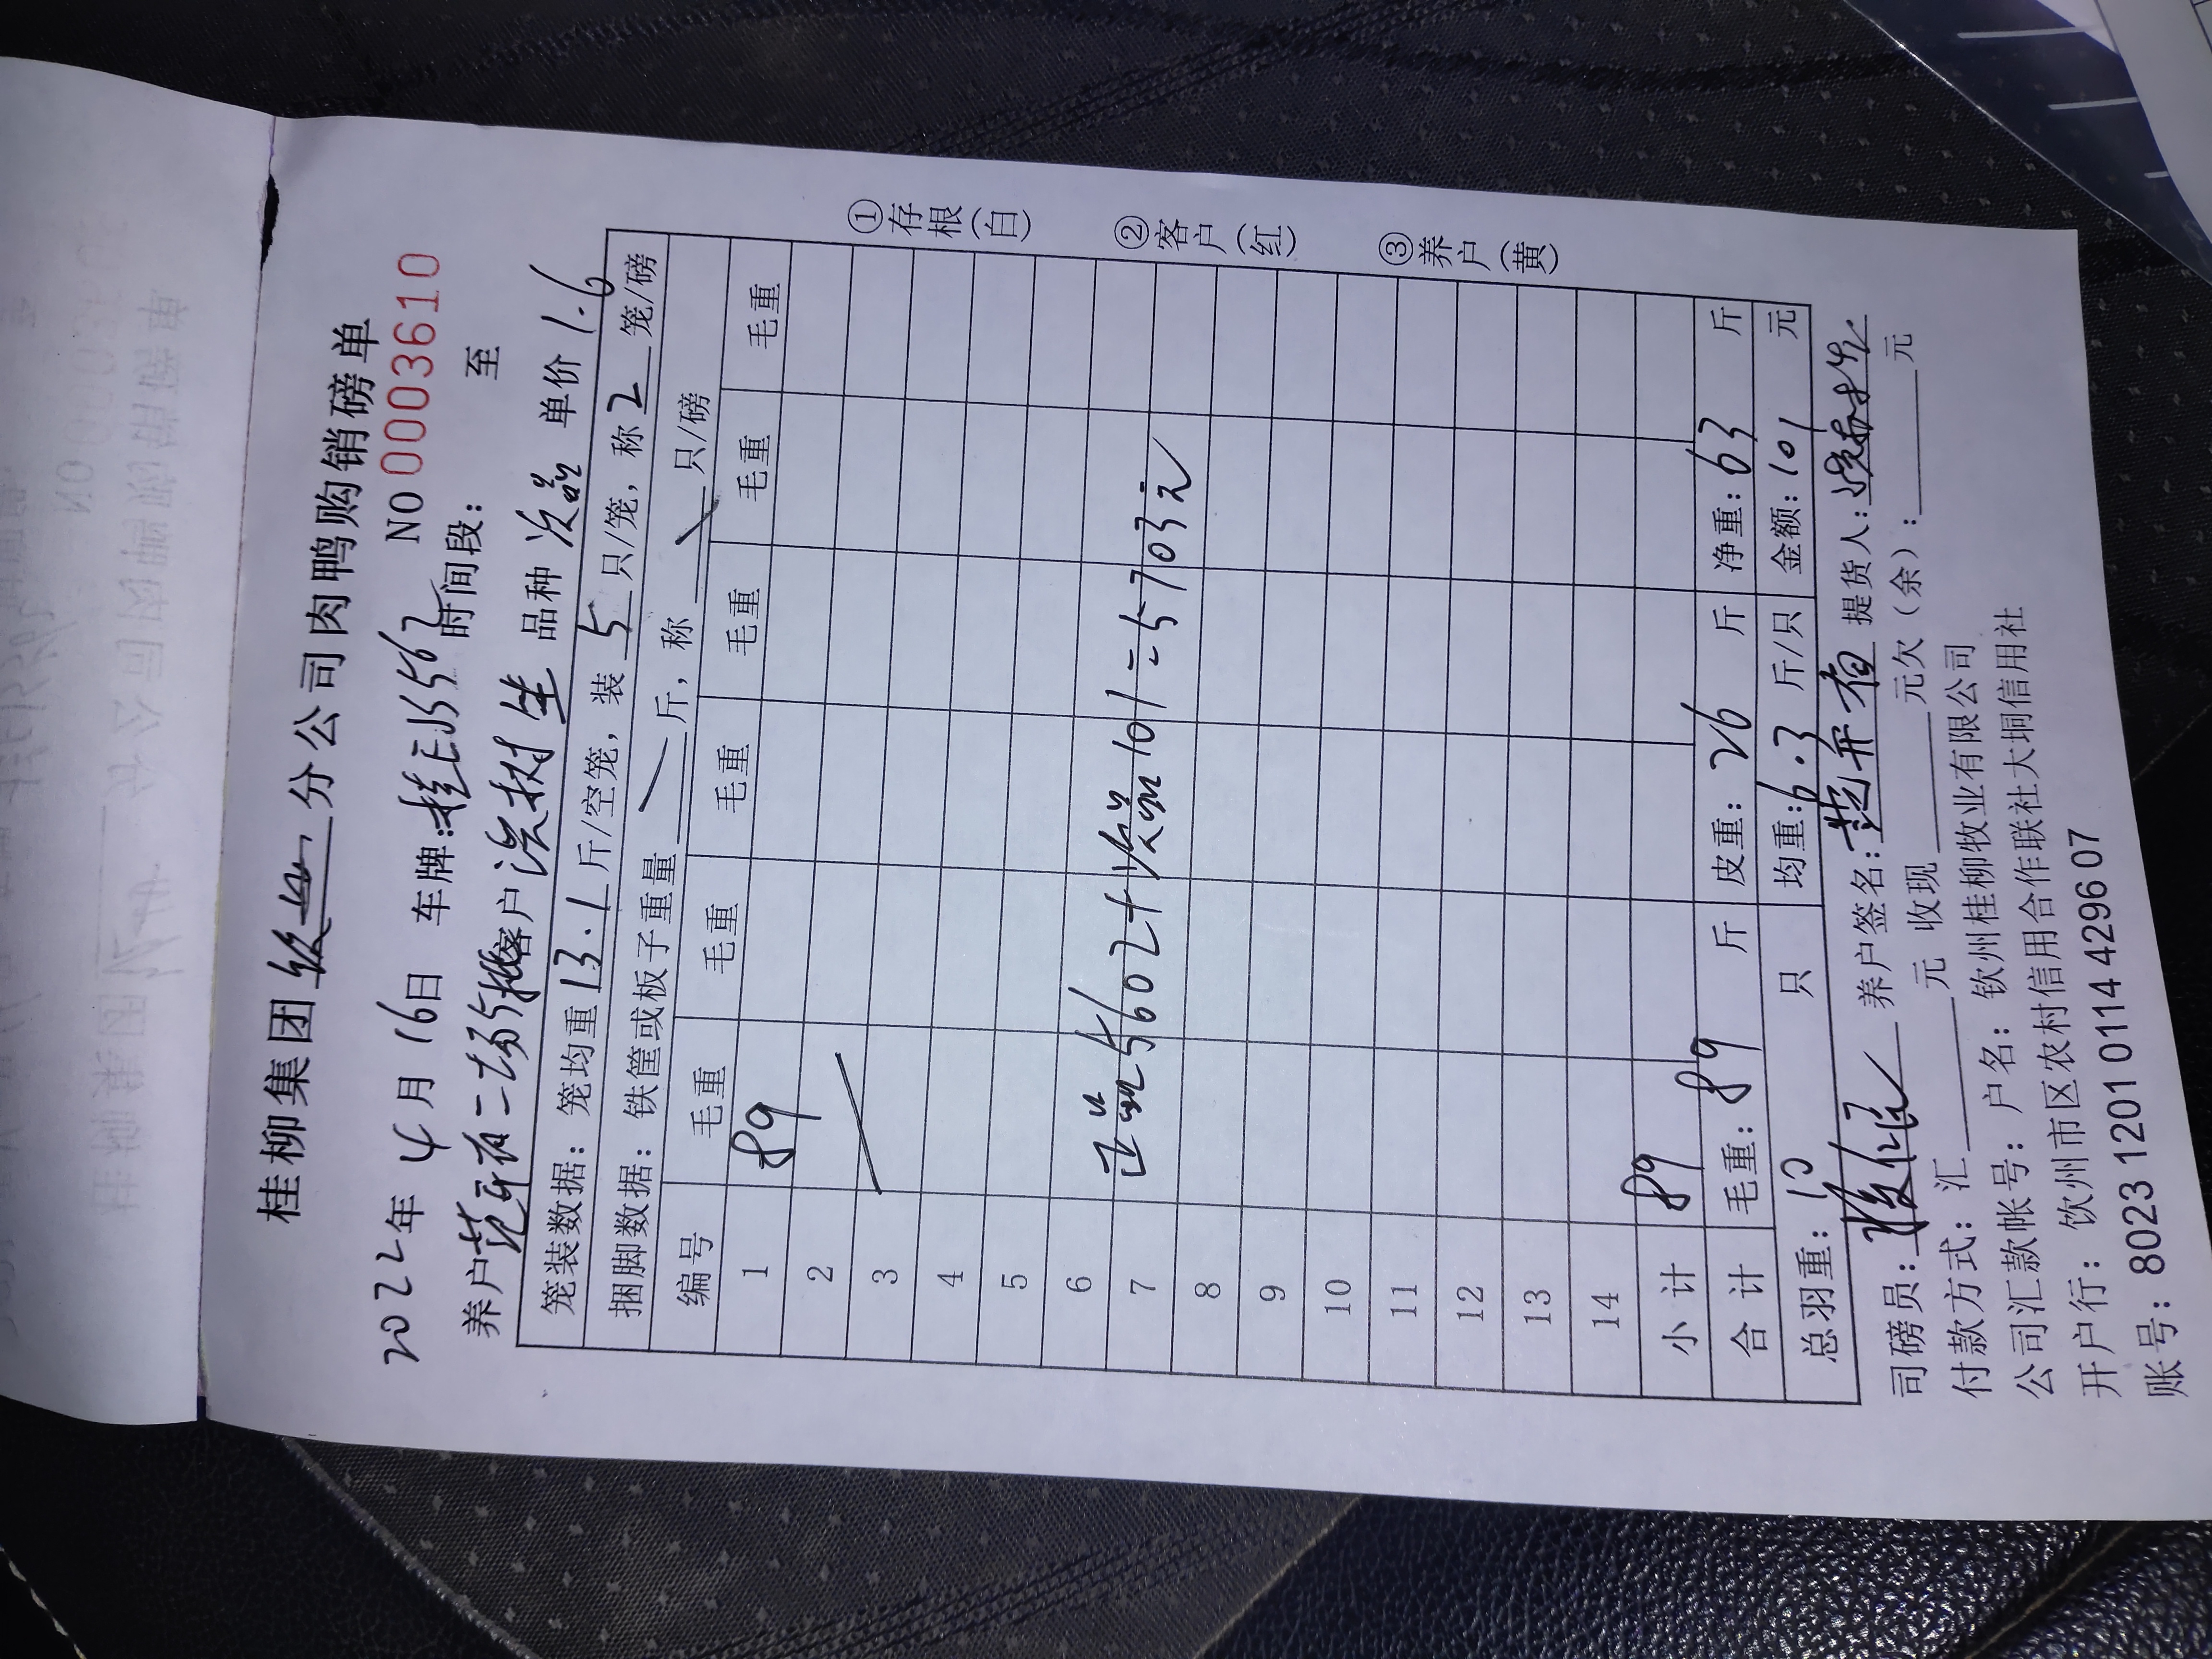 桂柳集团 分公司肉鸭购销磅单
2022年 4月 16日 车牌: NO 0003610
养户 二场 客户 树生 时间段: 至
品种 次品 单价 1.6
笼装数据: 笼均重 13.1 斤/空笼, 装 5 只/笼, 称 2 笼/磅
捆脚数据: 铁筐或板子重量 / 斤, 称 / 只/磅
编号 毛重 毛重 毛重 毛重 毛重 毛重
1 89
2
3
4
5
6
7
8
9
10
11
12
13
14
正品 5602+次品101=5703元
小计 89
合计 毛重: 89 斤 皮重: 26 斤 净重: 63 斤
总羽重: 10 只 均重: 6.3 斤/只 金额: 101 元
司磅员: 养户签名: 提货人:
付款方式: 汇 元 收现 元欠(余): 元
公司汇款帐号: 户名: 钦州桂柳牧业有限公司
开户行: 钦州市区农村信用合作联社大垌信用社
账号: 8023 1201 0114 4296 07
①存根(白)
②客户(红)
③养户(黄)